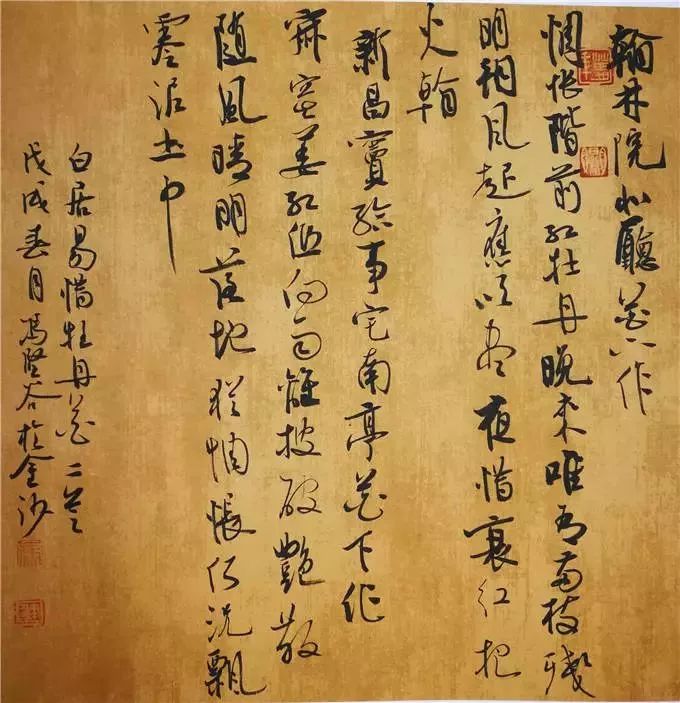 翰林院北廳花下作
惆怅階前红牡丹晚来唯有两枝残
明朝風起應吹盡夜惜衰红把
火翰
新昌竇給事宅南亭花下作
寂寞萎红低向雨離披破艷散
随風晴明落地猶惆悵何况飄
零泥土中
白居易惜牡丹花二首
戊戌春月冯谷於金沙